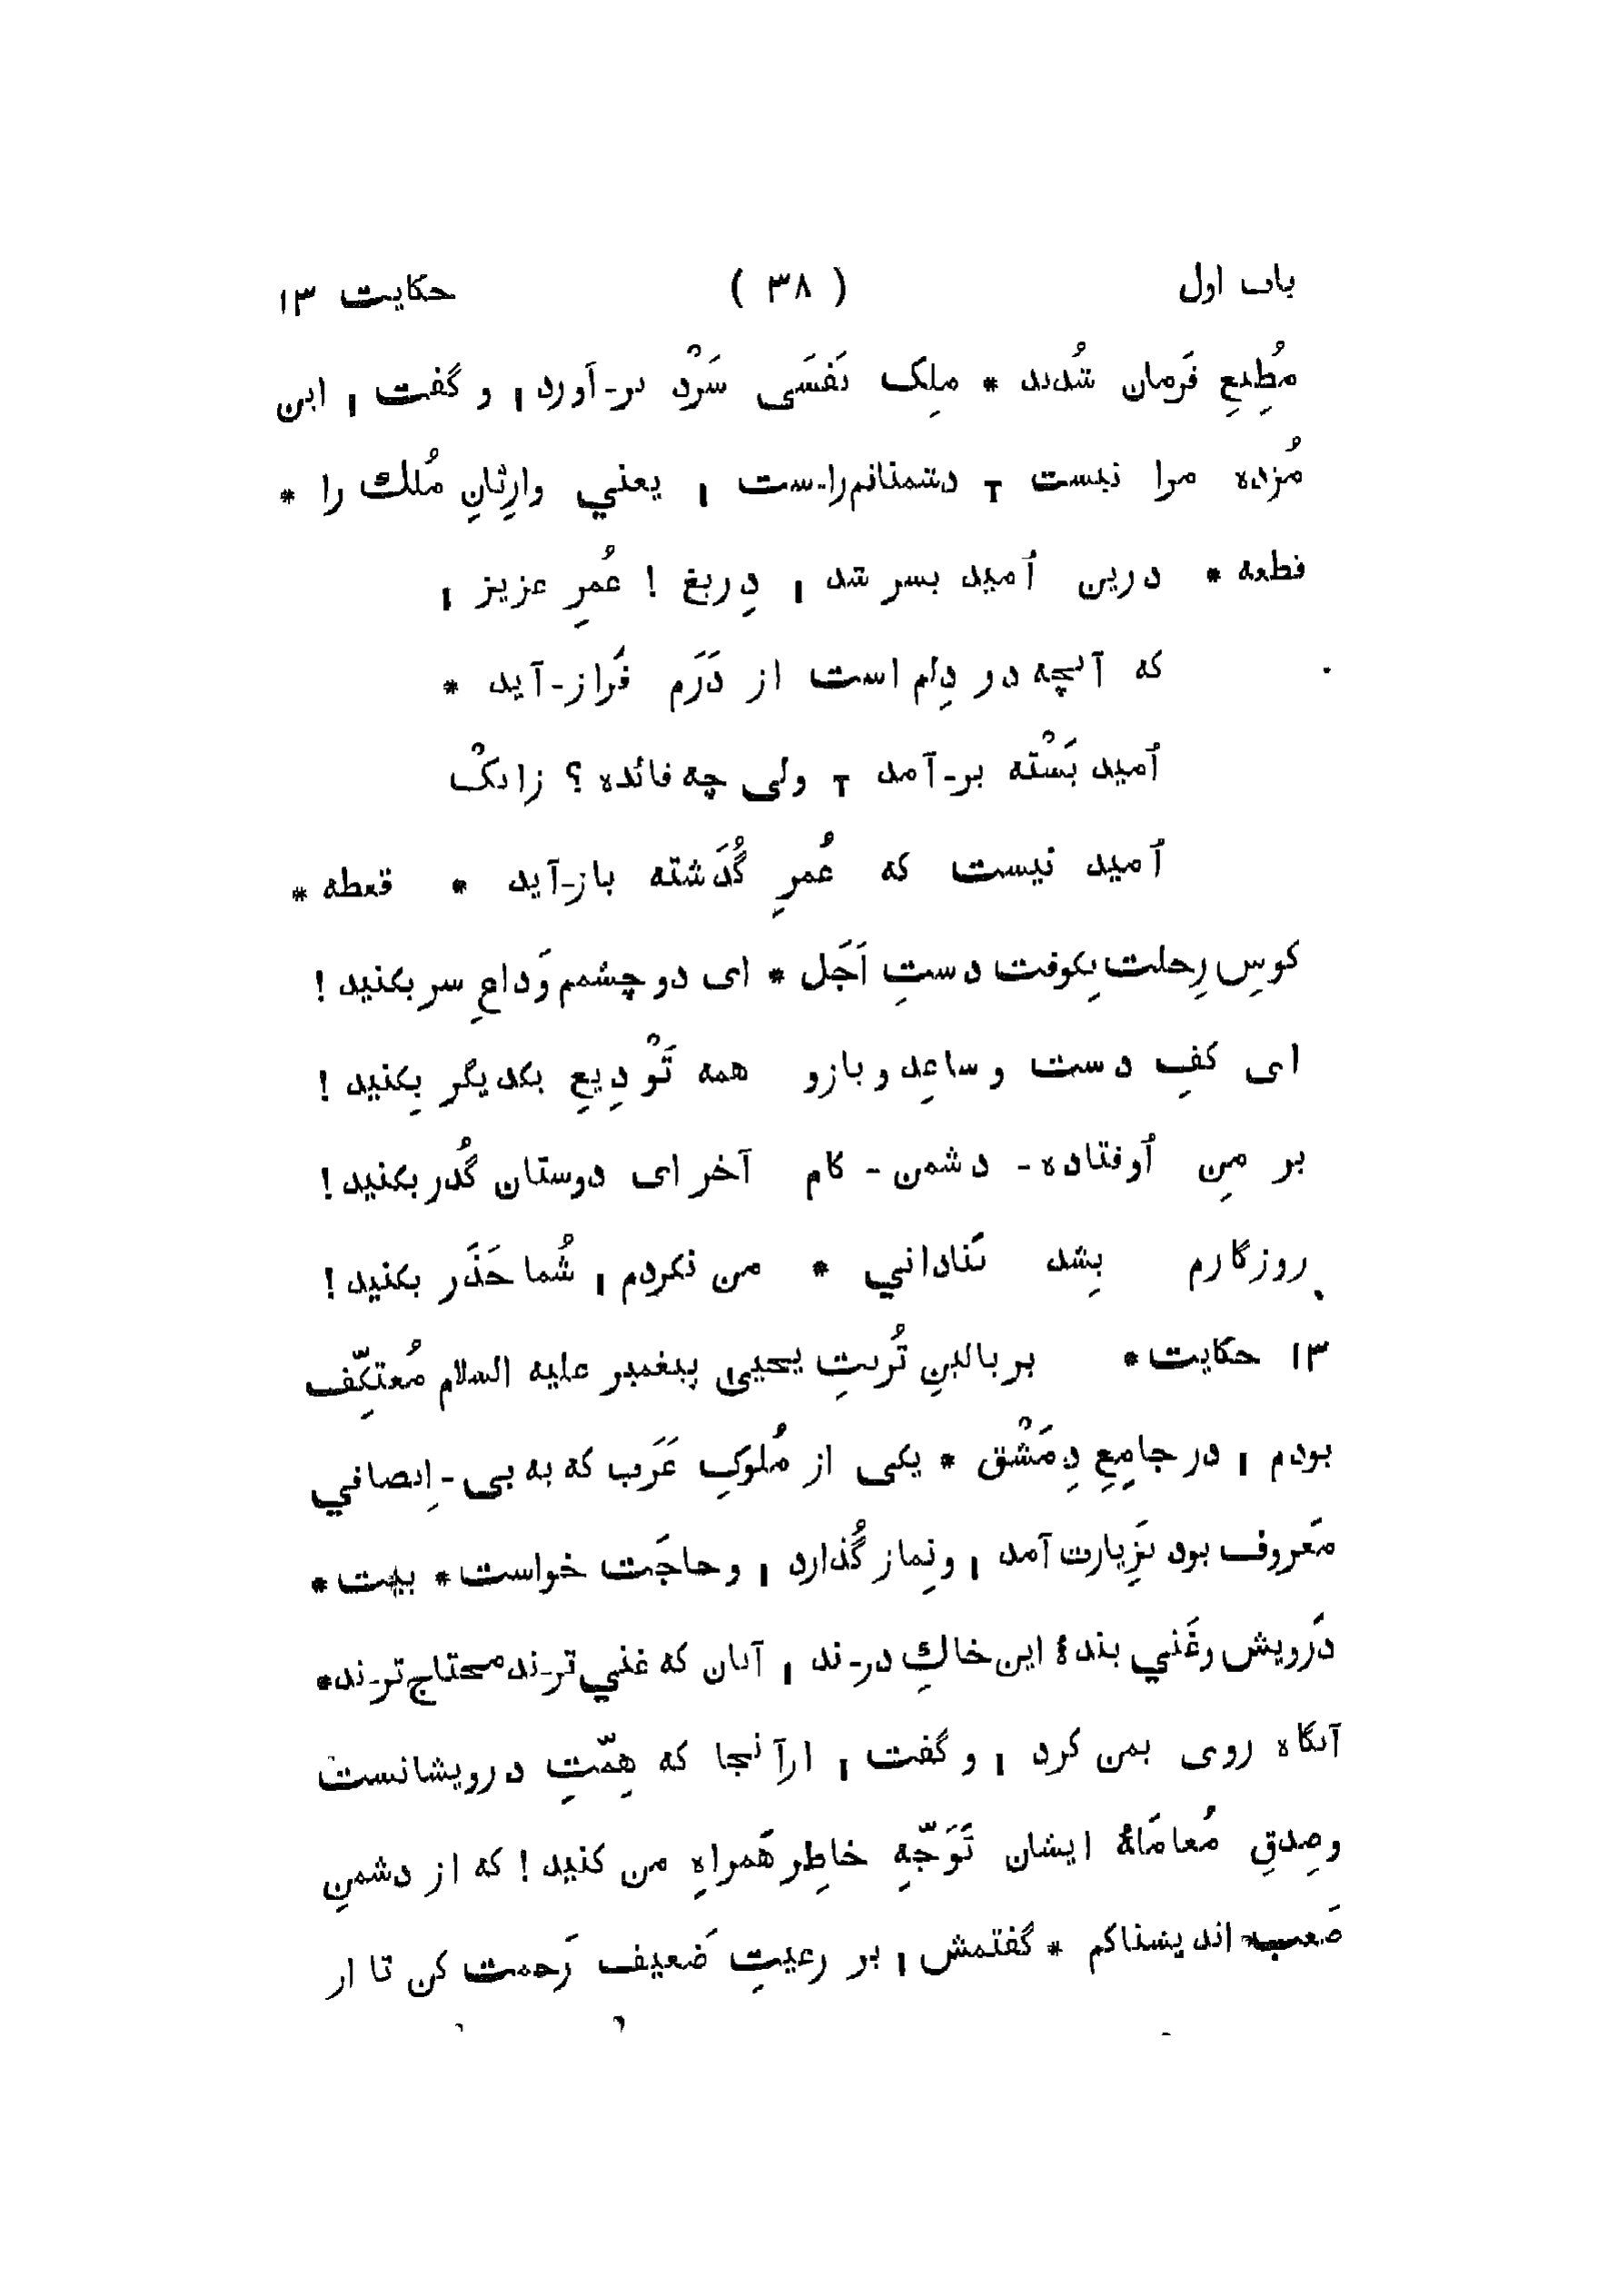 باب اول ( ۳۸ ) حکایت ۱۳
مُطِیعِ فَرمان شُدند * ملِک نَفَسَی سَرْد بر-آورد، و گفت، این
مُژده مرا نیست ـ دشمنانم‌را-ست، یعني وارِثانِ مُلك را *
قطعه * درین اُمید بسر شد، دِریغ ! عُمرِ عزیز،
که آنچه در دِلم است از دَرَم فَراز-آید *
اُمید بَسْته بر-آمد ـ ولی چه فائده؟ زانکْ
اُمید نیست که عُمرِ گُذَشته باز-آید * قعطه *
کوسِ رِحلت بِکوفت دستِ اَجَل * ای دو چشمم وَداعِ سر بکنید !
ای کفِ دست و ساعِد و بازو همه تَوْدِیعِ یکدیگر بِکنید !
بر منِ اُوفتاده- دشمن - کام آخر ای دوستان گُذر بکنید !
روزگارم بِشد بَناداني * من نکردم، شُما حَذَر بکنید !
۱۳ حکایت * بر بالینِ تُربتِ یحییٰ پیغمبر علیه السلام مُعتکِّف
بودم، در جامِعِ دِمَشْق * یکی از مُلوکِ عَرَب که به بی-اِنصافي
مَعروف بود بَزِیارت آمد، و نِماز گُذارد، و حاجَت خواست * بیت *
دَرویش و غَني بندهٔ این خاكِ در-ند، آنان که غني‌تر-ند محتاج‌تر-ند *
آنگاه روی بمن کرد، و گفت، ازآنجا که هِمّتِ درویشانست
و صِدقِ مُعامَلهٔ ایشان تَوَجّهِ خاطِر هَمراهِ من کنید ! که از دشمنِ
صَعب اندیشناکم * گفتمش، بر رعیتِ ضَعیف رَحمت کن تا از